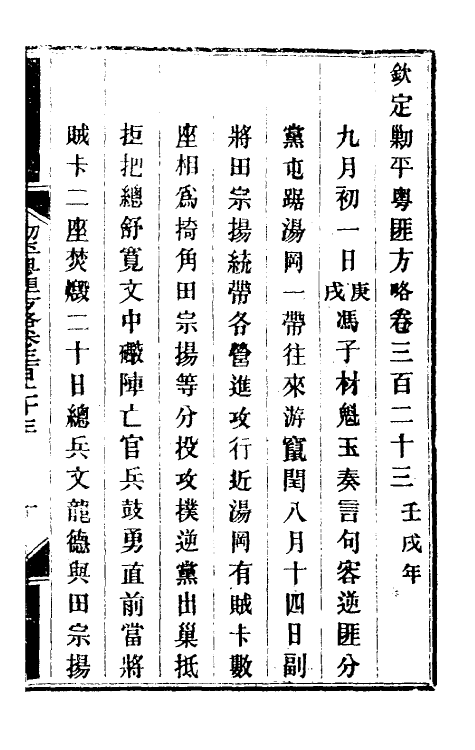 欽定勦平粵匪方略卷三百二十三 壬戌年
九月初一日庚戌馮子材魁玉奏言句容逆匪分
黨屯踞湯岡一帶往來游竄閏八月十四日副
將田宗揚統帶各營進攻行近湯岡有賊卡數
座相為掎角田宗揚等分投攻撲逆黨出巢抵
拒把總舒寬文中礮陣亡官兵鼓勇直前當將
賊卡二座焚燬二十日總兵文龍德與田宗揚